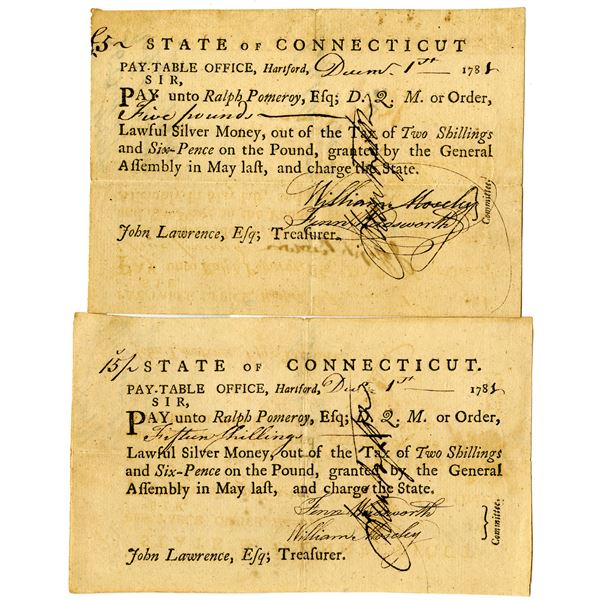 £5~ STATE OF CONNECTICUT
PAY-TABLE OFFICE, Hartford, Decemr. 1st 1781
SIR,
PAY unto Ralph Pomeroy, Esq; D. Q. M. or Order,
Five pounds
Lawful Silver Money, out of the Tax of Two Shillings
and Six-Pence on the Pound, granted by the General
Assembly in May last, and charge the State.
William Moseley
Fenn Wadsworth
Committee.
John Lawrence, Esq; Treasurer.
15/ STATE OF CONNECTICUT.
PAY-TABLE OFFICE, Hartford, Decr. 1st 1781
SIR,
PAY unto Ralph Pomeroy, Esq; D. Q. M. or Order,
Fifteen Shillings
Lawful Silver Money, out of the Tax of Two Shillings
and Six-Pence on the Pound, granted by the General
Assembly in May last, and charge the State.
Fenn Wadsworth
William Moseley
Committee.
John Lawrence, Esq; Treasurer.